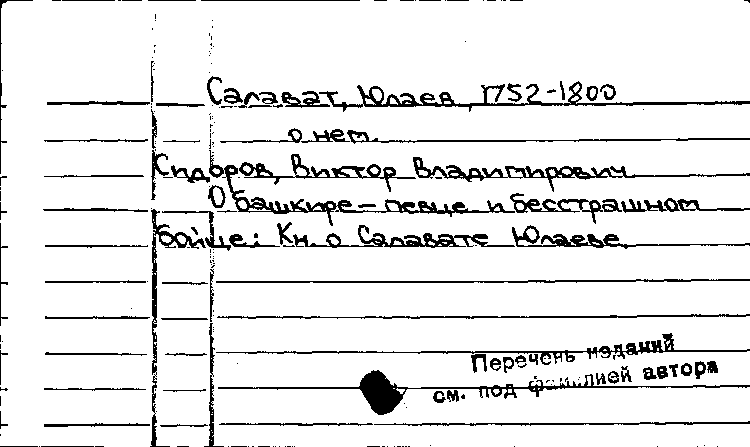 Салават, Юлаев, 1752-1800
о нем.
Сидоров, Виктор Владимирович
О башкире – певце и бесстрашном
бойце: Кн. о Салавате Юлаеве.
Перечень изданий
см. под фамилией автора